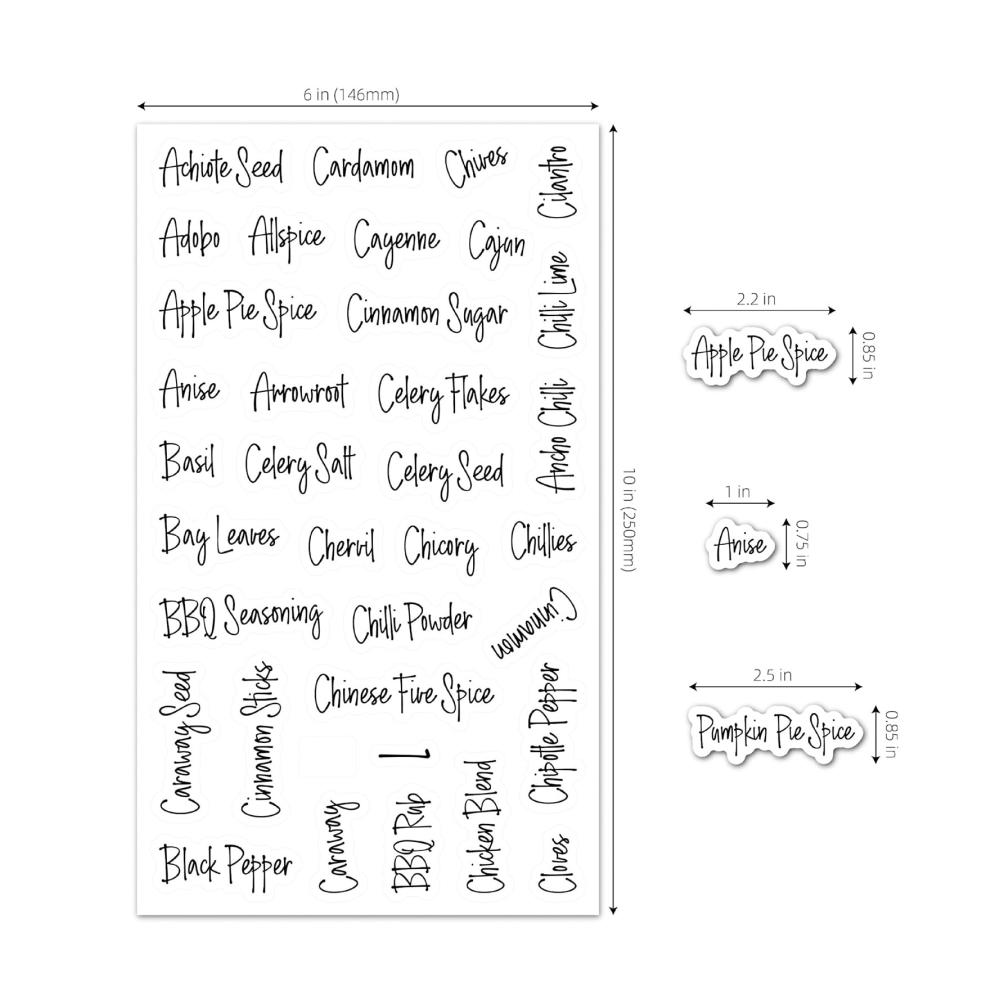 6 in (146mm)
Achiote Seed Cardamom Chives Cilantro
Adobo Allspice Cayenne Cajun
Chilli Lime
Apple Pie Spice Cinnamon Sugar
Anise Arrowroot Celery Flakes
Ancho Chilli
Basil Celery Salt Celery Seed
Bay Leaves Chervil Chicory Chillies
BBQ Seasoning Chilli Powder Cinnamon
Caraway Seed Cinnamon Sticks Chinese Five Spice Chipotle Pepper
1
Black Pepper Caraway BBQ Rub Chicken Blend Cloves
10 in (250mm)
2.2 in
Apple Pie Spice
0.85 in
1 in
Anise
0.75 in
2.5 in
Pumpkin Pie Spice
0.85 in